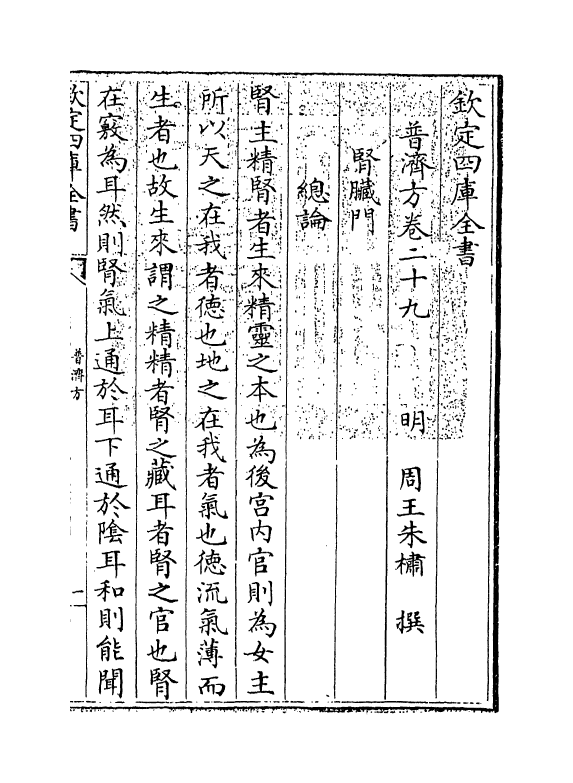 欽定四庫全書
普濟方卷二十九　明　周王朱橚　撰
腎臟門
總論
腎主精腎者生來精靈之本也為後宮内官則為女主
所以天之在我者徳也地之在我者氣也徳流氣薄而
生者也故生來謂之精精者腎之藏耳者腎之官也腎
在竅為耳然則腎氣上通於耳下通於陰耳和則能聞
欽定四庫全書
普濟方
一